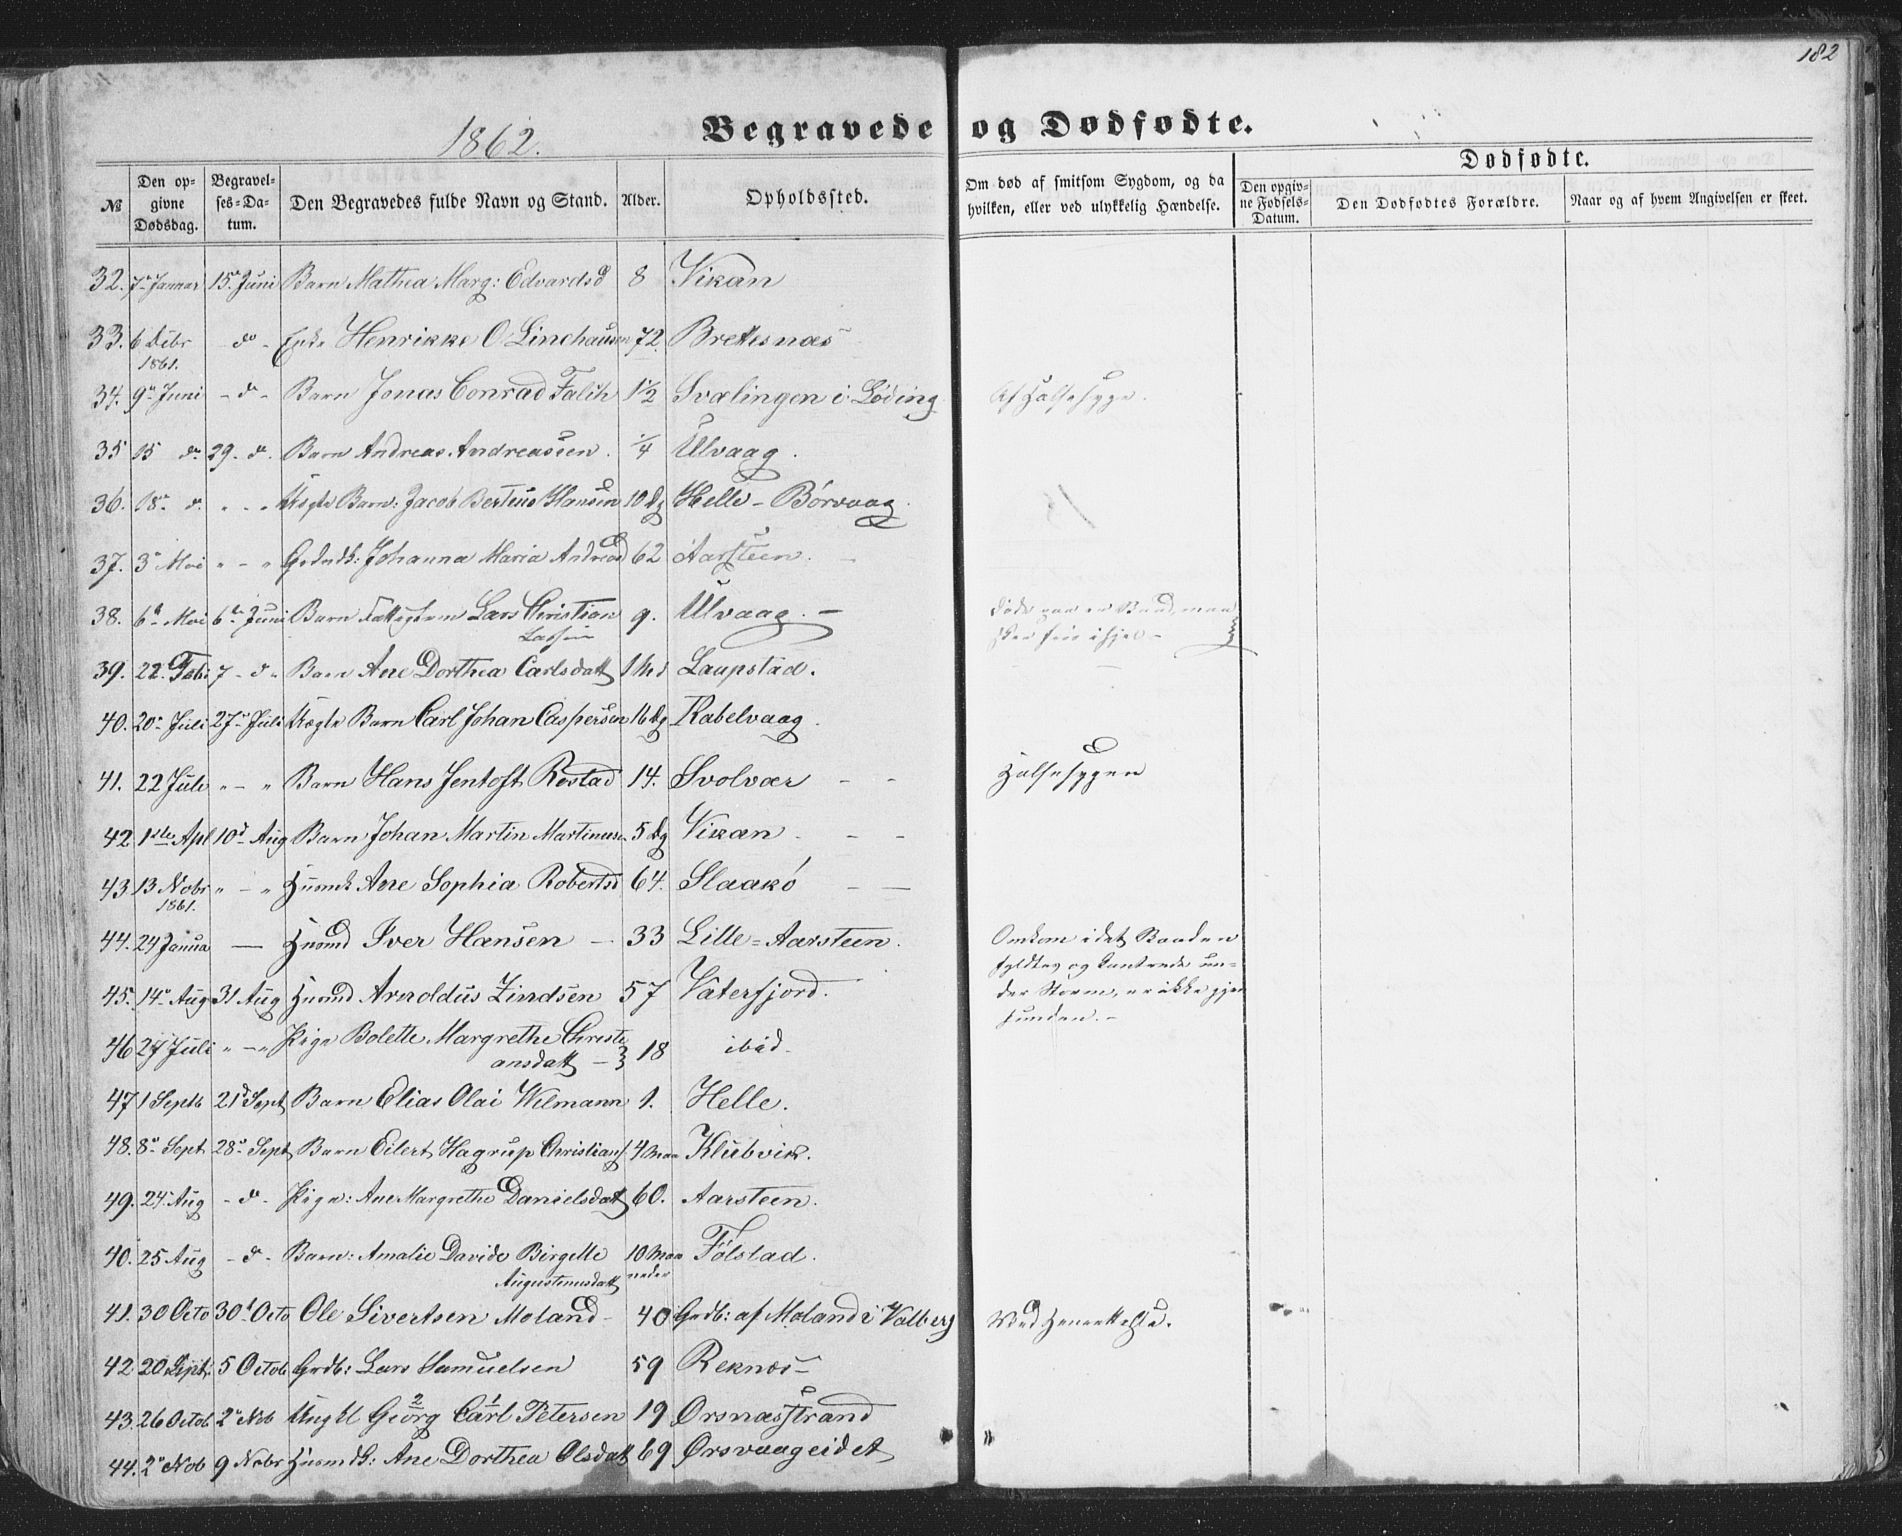 182
1862.
Begravede og Dødfødte.
Dødfødte.
№
Den op-
givne
Dødsdag.
Begravel-
ses-Da-
tum.
Den Begravedes fulde Navn og Stand.
Alder.
Opholdssted.
Om død af smitsom Sygdom, og da
hvilken, eller ved ulykkelig Hændelse.
Den opgiv-
ne Fødsels-
Datum.
Den Dødfødtes Forældre.
Naar og af hvem Angivelsen er skeet.
32. 7de Januar 15de Juni Barn Mathea Marg: Edvardsd 8 Vikan
33. 6 Debr do Enke Henrikke O. Linchausen 72. Brettesnæs
1861.
34. 9de Juni - do - Barn Jonas Conrad Falch 1½ Svælingen i Løding Af Halssyge.
35 15 do 29. do. Barn Andreas Andreassen. ¼ Ulvaag.
36. 18de do. " - " Uægte Barn: Jacob Berteus Hansen 10 Dg Helle - Børvaag.
37. 3de Mai " - " Grdmdk: Johanna Maria Andread 62 Aarsteen.
38. 6te Mai 6te Juni Barn Lars Christian 9. Ulvaag. - døde paa en Baad,
Larsen
39. 22. Febr 7 - do - Barn Ane Dorthea Carlsdatt 1 Md Laupstad.
40. 20de Juli 27de Juli Uægte Barn Carl Johan Caspersen 16 Dg Kabelvaag.
41. 22 Juli " - " Barn Hans Jentoft Rostad 14. Svolvær - - Halssygen
42 1ste Apl 10d Aug Barn Johan Martin Martinusen 5 Dg Vikan - - -
43 13 Nobr " - " Huusmk Ane Sophia Robertsd 64. Slaakø - -
1861.
44. 24 Janua - Huusmd Iver Hansen - 33 Lille=Aarsteen. Omkom idet Baaden
fyldtes og kantrede un=
der Storm, er ikke gjen
funden. -
45. 14de Aug 31 Aug Huusmd Arnoldus Zindsen 57 Vaterfjord.
46 27 Juli " - " Pige Bolette Margrethe Christi
ansdatt - 18 ibid.
47 1 Septb 21d Sept Barn Elias Olai Wilmann 1. Helle.
48. 8de Sept 28de Sept Barn Eilert Hagrup Christians 4 Maa Klubvik.
49. 24 Aug - do - Pige: Ane Margrethe Danielsdatt 60. Aarsteen.
40. 25 Aug - do - Barn: Amalie Davide Birgette 10 Maa Følstad.
Augustinusdatt neder
41. 30 Octo 30t Octo Ole Sivertsen Moland - 40 Grdb: af Moland i Valberg
42 20 Sept. 5 Octob Grdb: Lars Samuelsen 59 Reknæs -
43. 26 Octob 2de Nob Ungkl Georg Carl Petersen 19 Ørsnæsstrand
2 1
44. 2de Nob 9 Nobr Huusmdk: Ane Dorthea Olsdatt 69 Ørsvaageidet